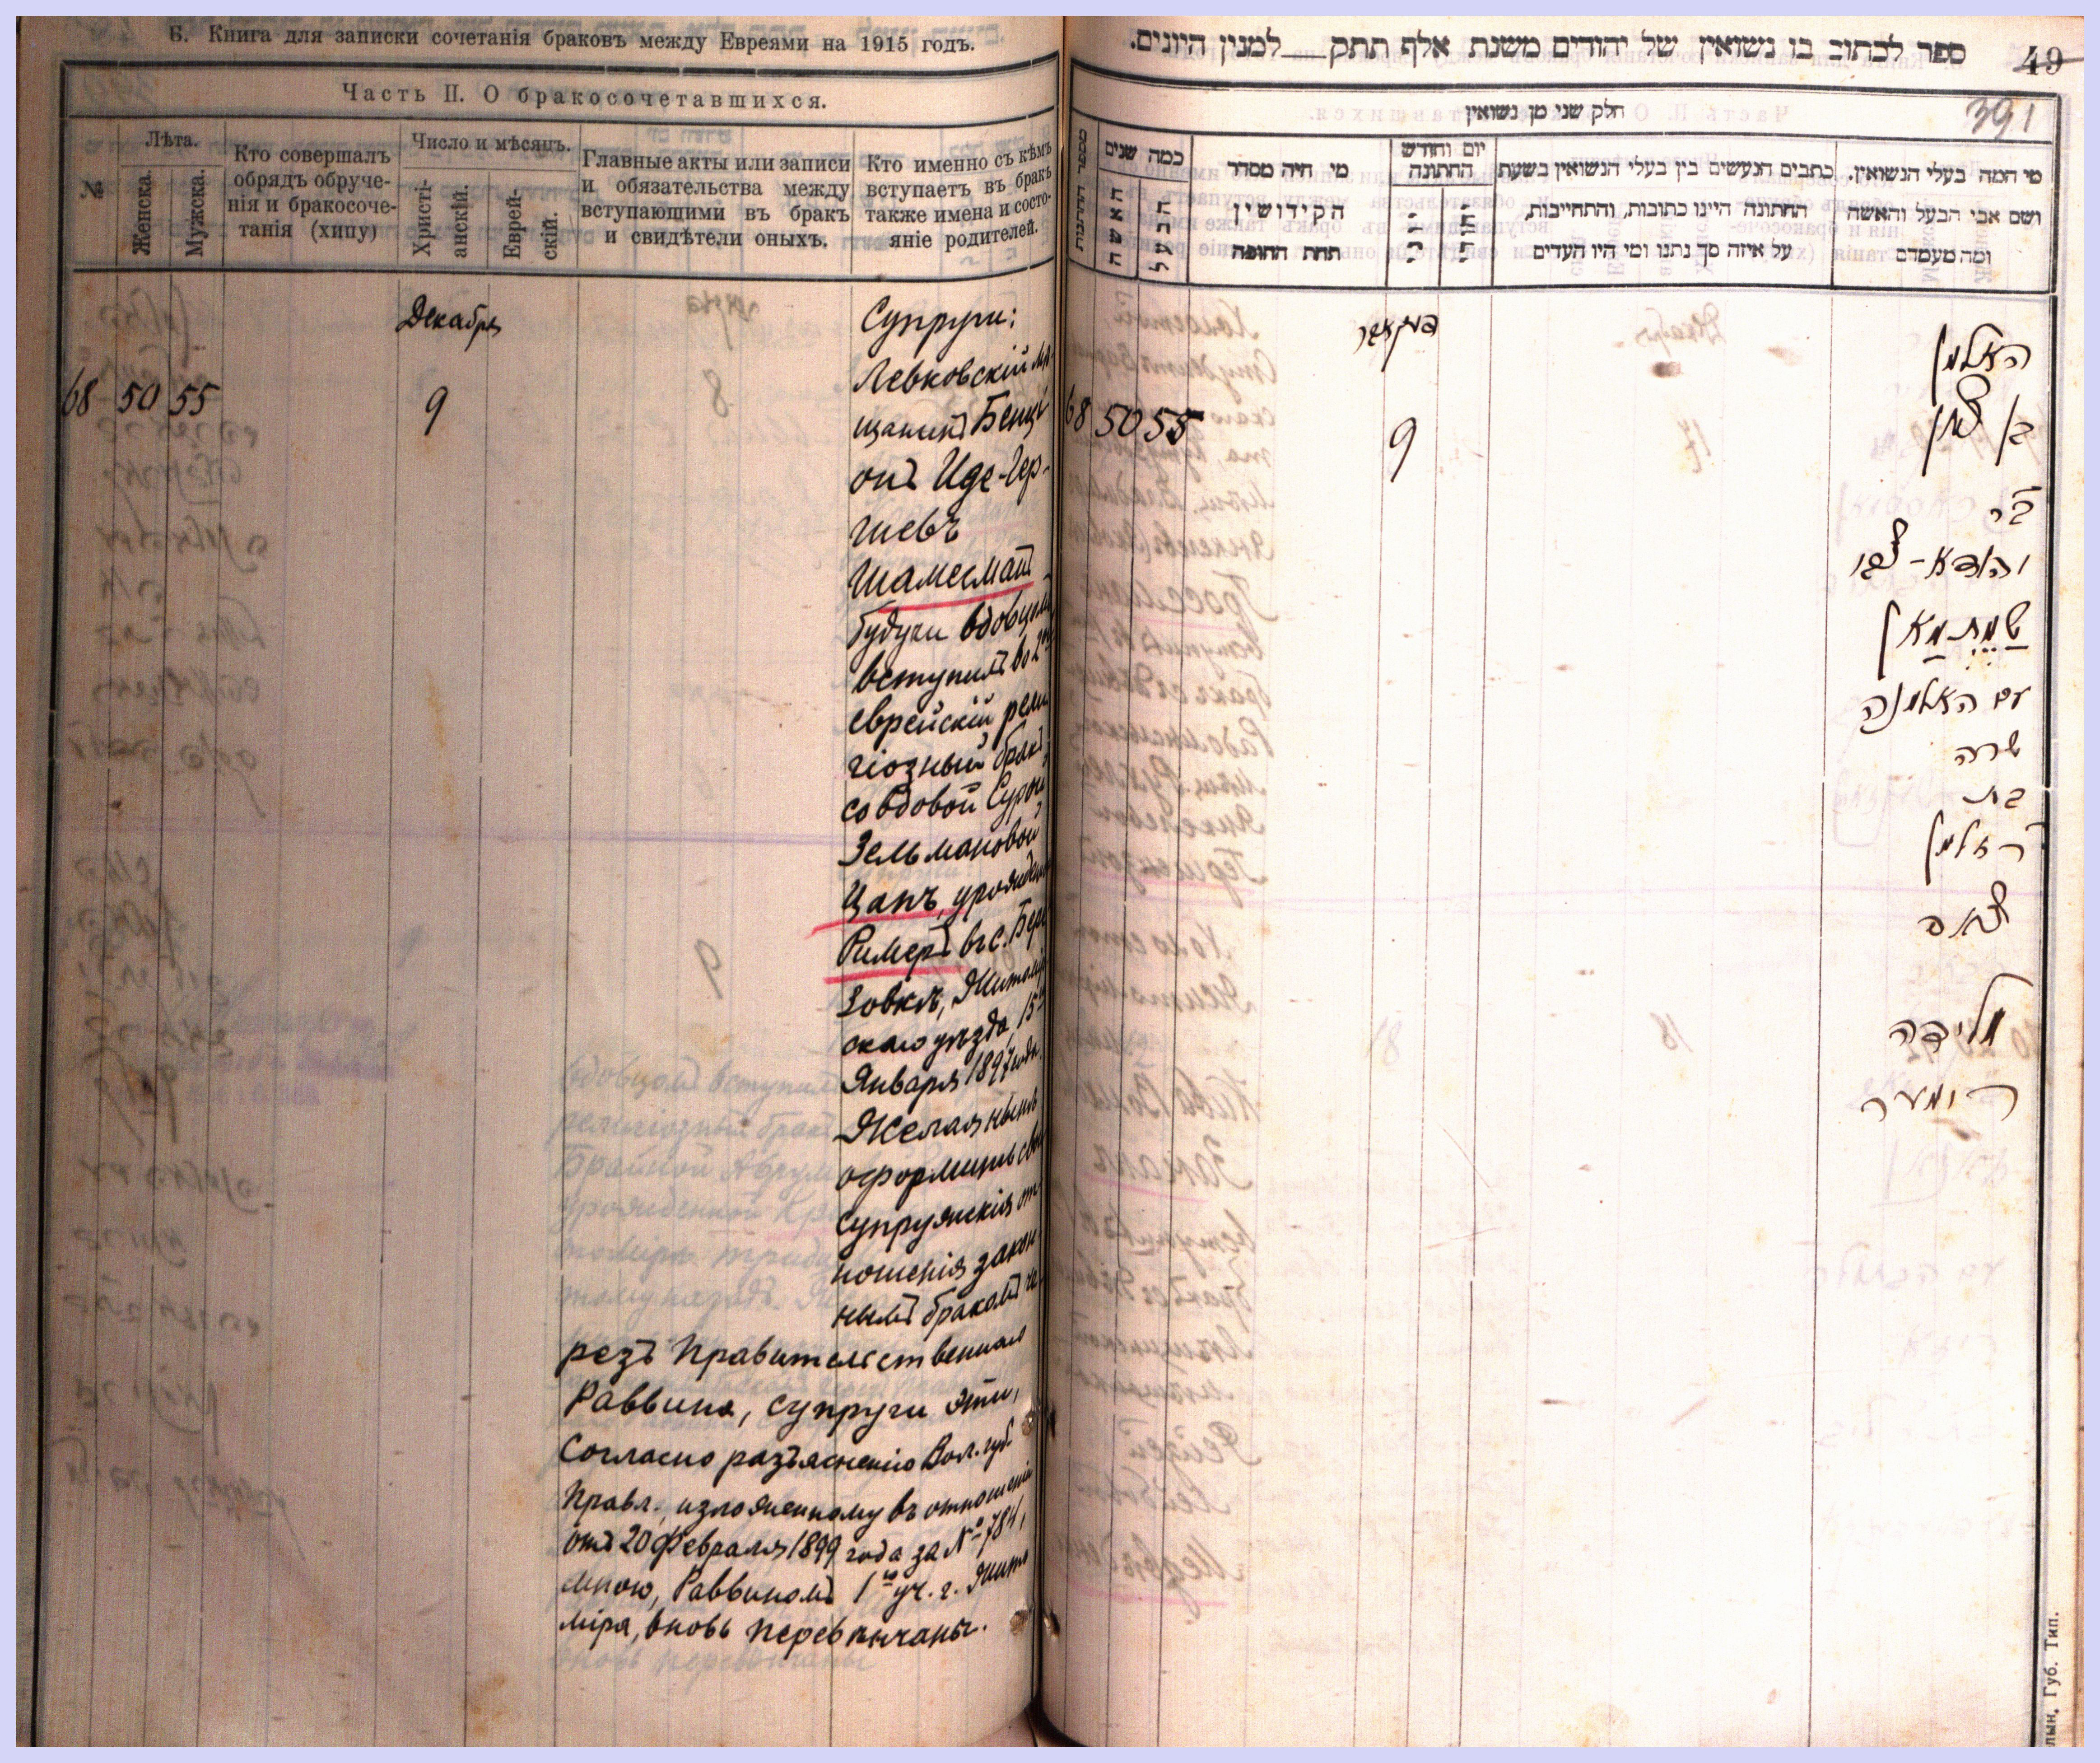 Б. Книга для записки сочетанія браковъ между Евреями на 1915 годъ.
Часть II. О бракосочетавшихся.
№
Лѣта.
Женска.
Мужска.
Кто совершалъ
обрядъ обруче-
нія и бракосоче-
танія (хипу)
Число и мѣсяцъ.
Христі-
анскій.
Еврей-
скій.
Главные акты или записи
и обязательства между
вступающими въ бракъ
и свидѣтели оныхъ.
Кто именно съ кѣмъ
вступаетъ въ бракъ
также имена и состо-
яніе родителей.
Декабря
68 50 55
9
Супруги:
Левковскій мѣ-
щанинъ Бенці
онъ Иде-Гер-
шевъ
Шамесманъ
будучи вдовцемъ
вступилъ во 2й
еврейскій рели
гіозный бракъ
со вдовой Сурой
Зельмановой
Цапъ, урожден
Римеръ въ с. Бере
зовкѣ, Житомір
скаго уѣзда, 15го
Января 1897 года.
Желая нынѣ
оформить свои
супружескія от-
ношенія закон
нымъ бракомъ че
резъ Правительственнаго
Раввина, супруги эти,
согласно разъясненію Вол. губ.
Правл., изложенному въ отношеніи
отъ 20 Февраля 1899 года за № 784,
мною, Раввиномъ 1го уч. г. Жито
міра, вновь перевѣнчаны.
ספר לכתוב בו נשואין של יהודים משנת אלף תתק למנין היונים.
49
391
חלק שני מן נשואין
מספר החתונות
כמה שנים
האשה
הבעל
מי היה מסדר
הקידושין
תחת החופה
יום וחודש
החתונה
כתבים הנעשים בין בעלי הנשואין בשעת
החתונה היינו כתובות, והתחייבות,
על איזה סך נתנו ומי היו העדים
מי המה בעלי הנשואין.
ושם אבי הבעל והאשה
ומה מעמדם
דעקאבר
68 50 55
9
האלמן
בן ציון
בר
שמתמאן
עם האלמנה
שרה
בת
ר זלמן
צאפ
מלידה
רימער
Губ. Тип.